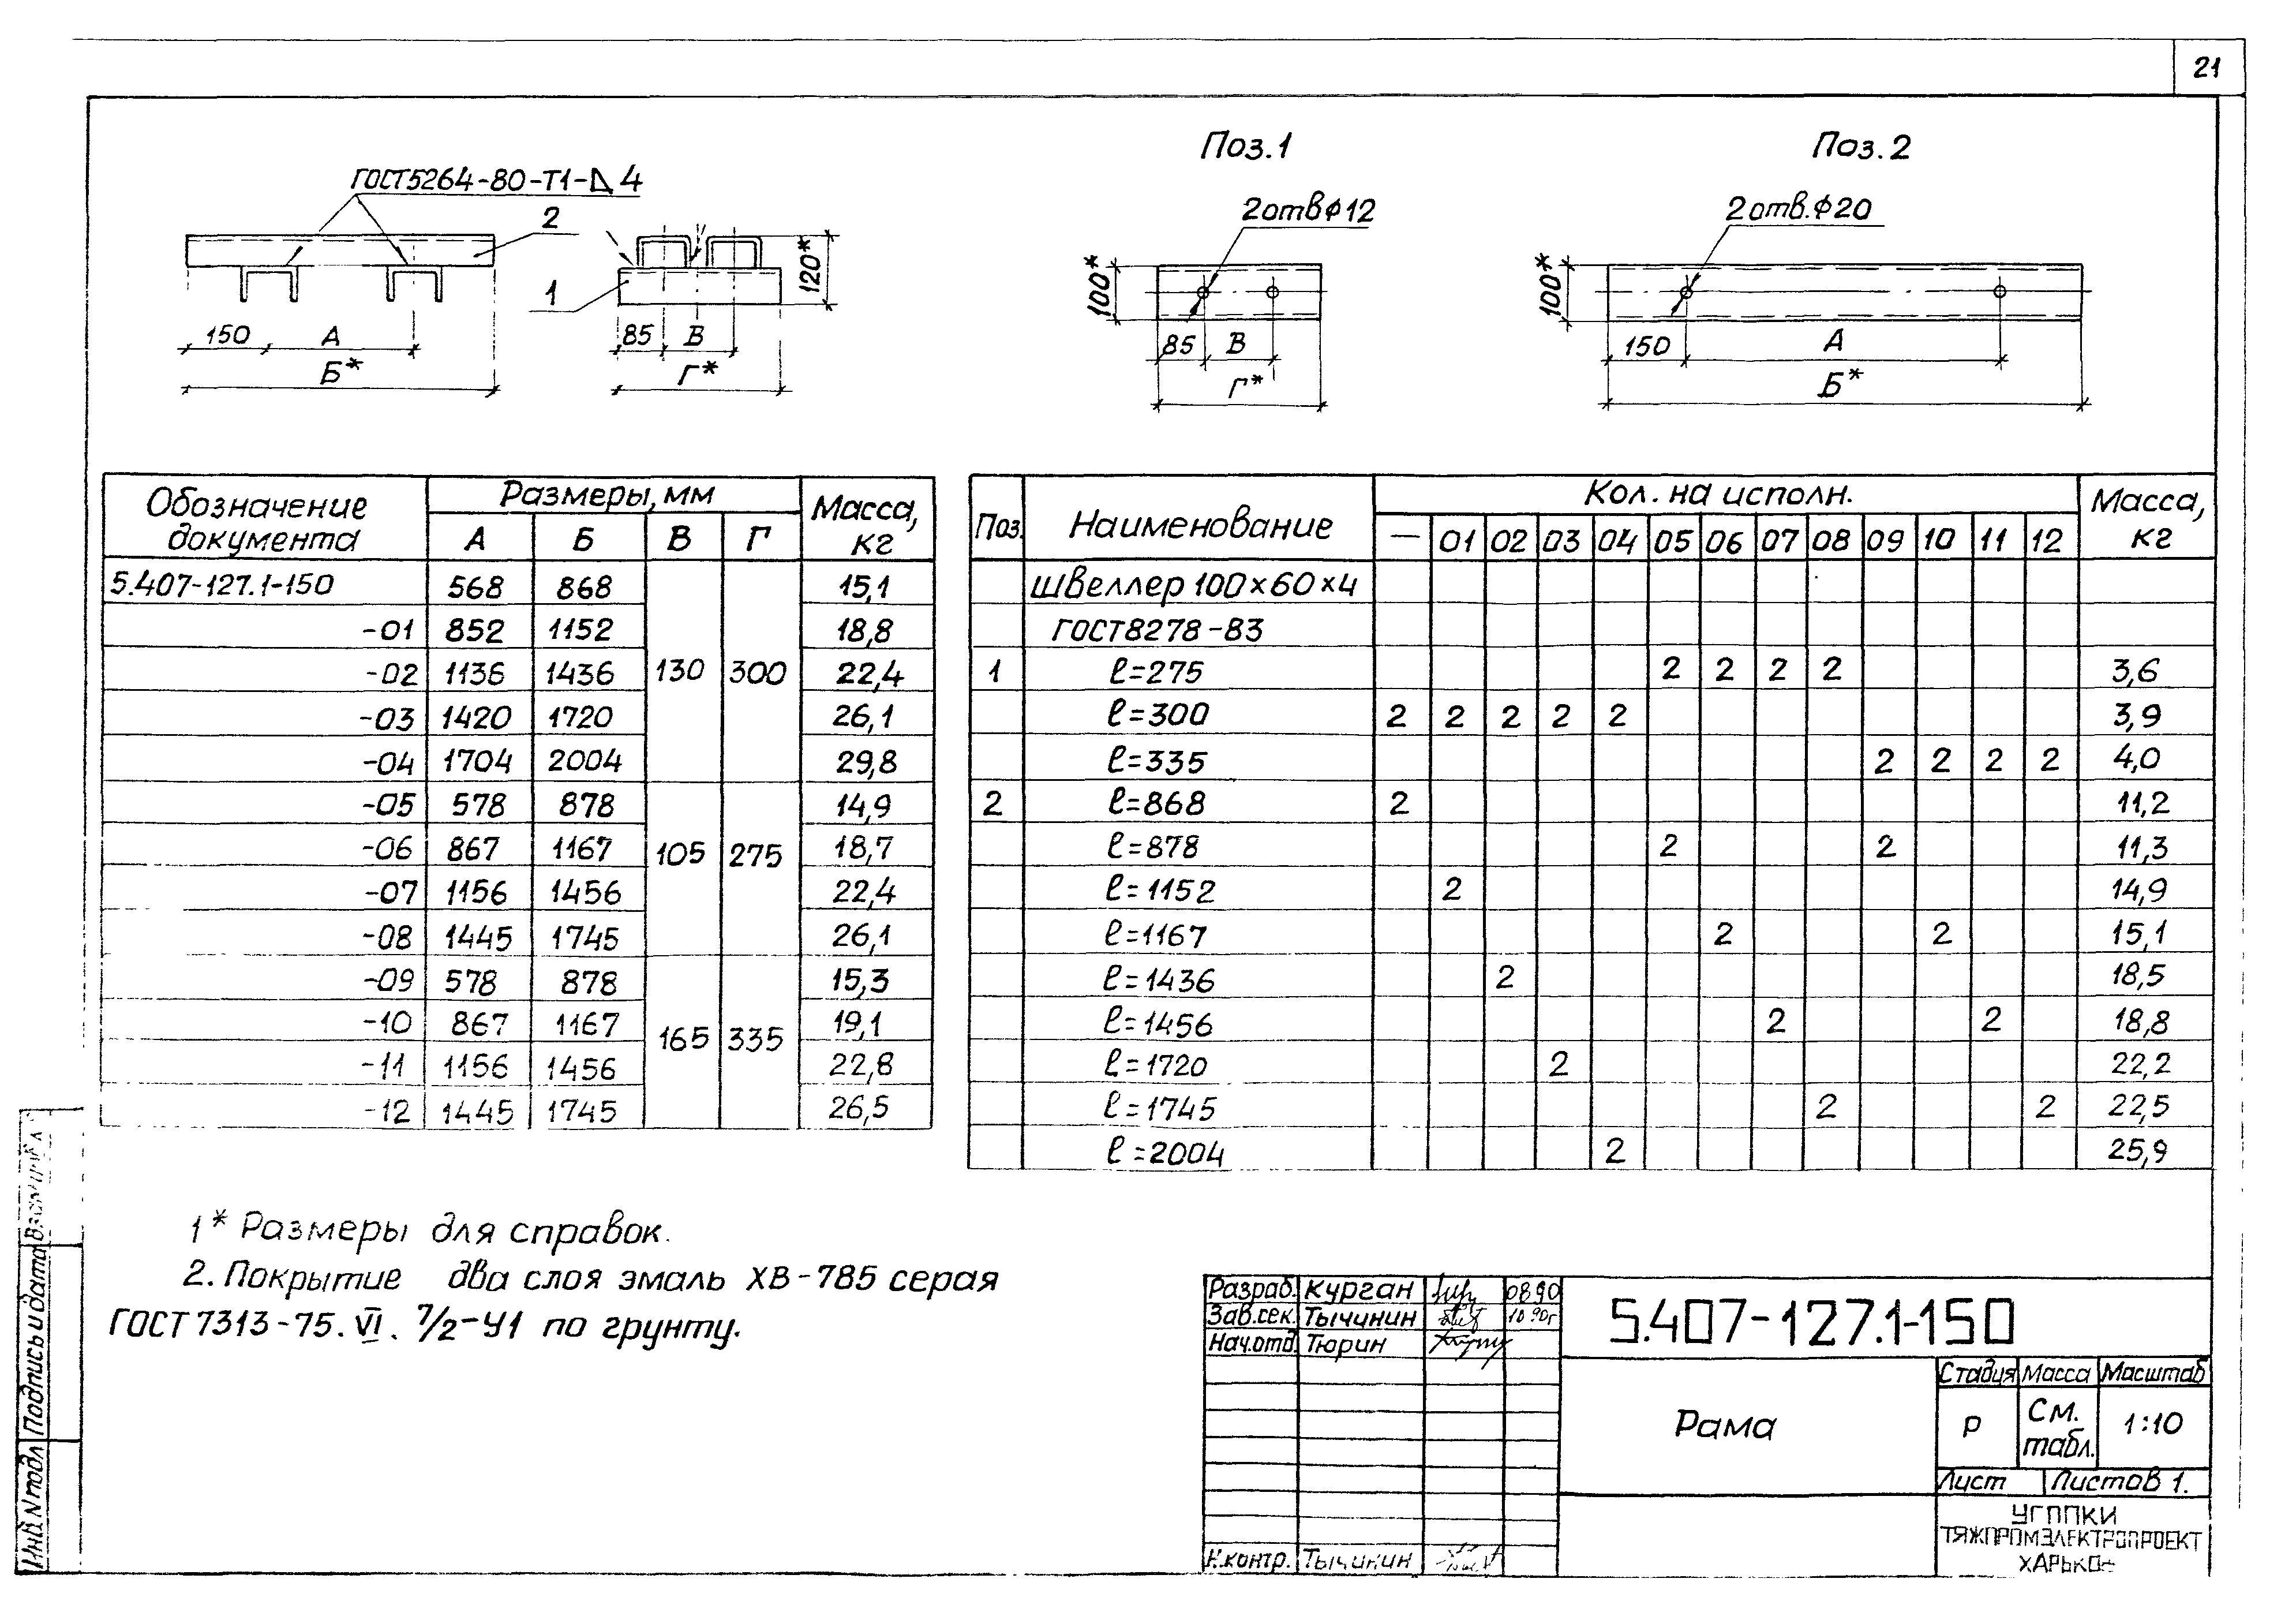 21
ГОСТ5264-80-Т1-Δ4
2
1
150
А
Б*
85
В
Г*
120*
Поз.1
2отвф12
100*
85
В
Г*
Поз.2
2отв.ф20
100*
150
А
Б*
Обозначение документа Размеры, мм Масса, кг
А Б В Г
5.407-127.1-150 568 868 15,1
-01 852 1152 18,8
-02 1136 1436 130 300 22,4
-03 1420 1720 26,1
-04 1704 2004 29,8
-05 578 878 14,9
-06 867 1167 105 275 18,7
-07 1156 1456 22,4
-08 1445 1745 26,1
-09 578 878 15,3
-10 867 1167 165 335 19,1
-11 1156 1456 22,8
-12 1445 1745 26,5
Поз. Наименование Кол. на исполн. Масса, кг
— 01 02 03 04 05 06 07 08 09 10 11 12
Швеллер 100×60×4
ГОСТ8278-83
1 ℓ=275 2 2 2 2 3,6
ℓ=300 2 2 2 2 2 3,9
ℓ=335 2 2 2 2 4,0
2 ℓ=868 2 11,2
ℓ=878 2 2 11,3
ℓ=1152 2 14,9
ℓ=1167 2 2 15,1
ℓ=1436 2 18,5
ℓ=1456 2 2 18,8
ℓ=1720 2 22,2
ℓ=1745 2 2 22,5
ℓ=2004 2 25,9
1* Размеры для справок.
2. Покрытие два слоя эмаль ХВ-785 серая
ГОСТ 7313-75. VI. 7/2-У1 по грунту.
Разраб. Курган 08.90
Зав.сек. Тычинин 10 90г
Нач.отд. Тюрин
Н.контр. Тычинин
5.407-127.1-150
Рама
Стадия Масса Масштаб
Р См. табл. 1:10
Лист Листов 1.
ТЯЖПРОМЭЛЕКТРОПРОЕКТ
Инв.N подл Подпись и дата